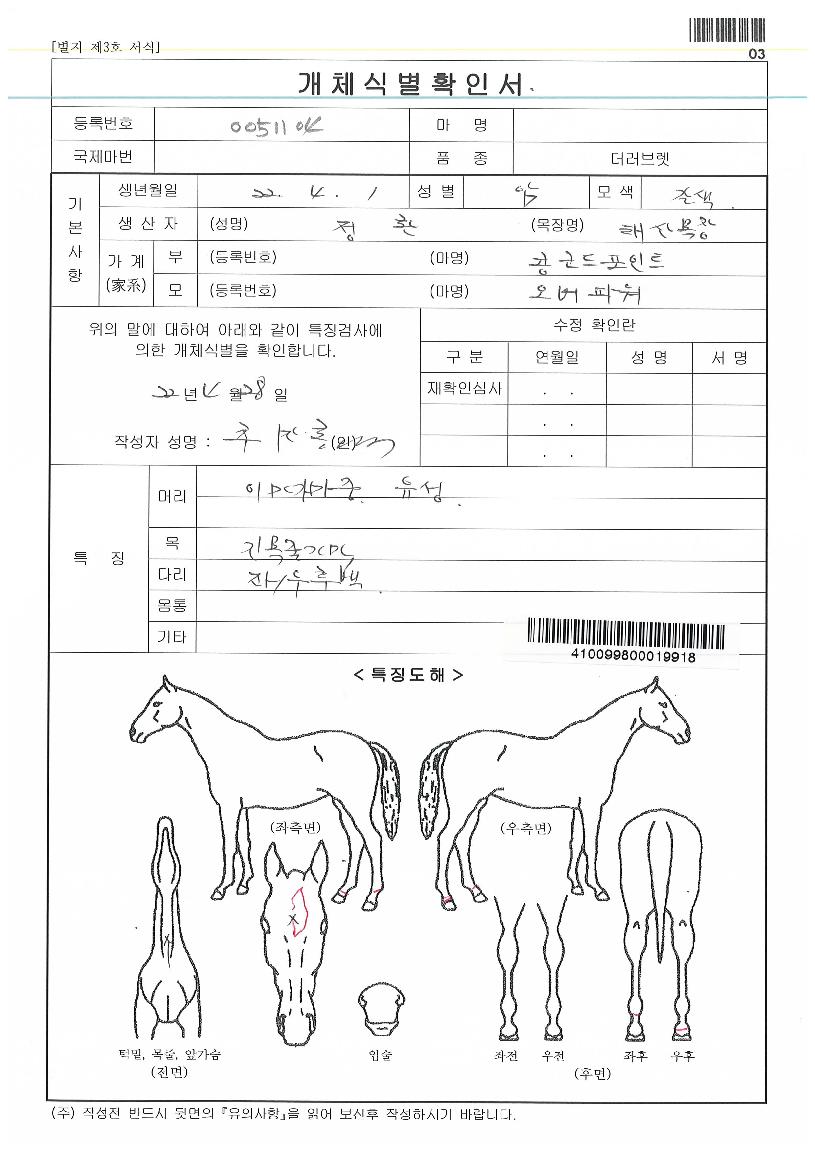 [별지 제3호 서식]
03
개체식별확인서
등록번호 0051104 마 명
국제마번 품 종 더러브렛
기본사항
생년월일 22. 4. 1 성별 암 모색 갈색.
생 산 자 (성명) 정 환 (목장명) 해 목장
가 계 (家系) 부 (등록번호) (마명) 콩코드포인트
모 (등록번호) (마명) 오버파워
위의 말에 대하여 아래와 같이 특징검사에
의한 개체식별을 확인합니다.
22 년 4 월 28 일
작성자 성명 : (인)
수정 확인란
구 분 연월일 성 명 서 명
재확인심사 . .
. .
. .
특 징
머리 이마가마중. 유성.
목
다리 좌/우후백.
몸통
기타
410099800019918
< 특징도해 >
(좌측면) (우측면)
턱밑, 목줄, 앞가슴
(전면)
입술
좌전 우전 좌후 우후
(후면)
(주) 작성전 반드시 뒷면의 『유의사항』을 읽어 보신후 작성하시기 바랍니다.